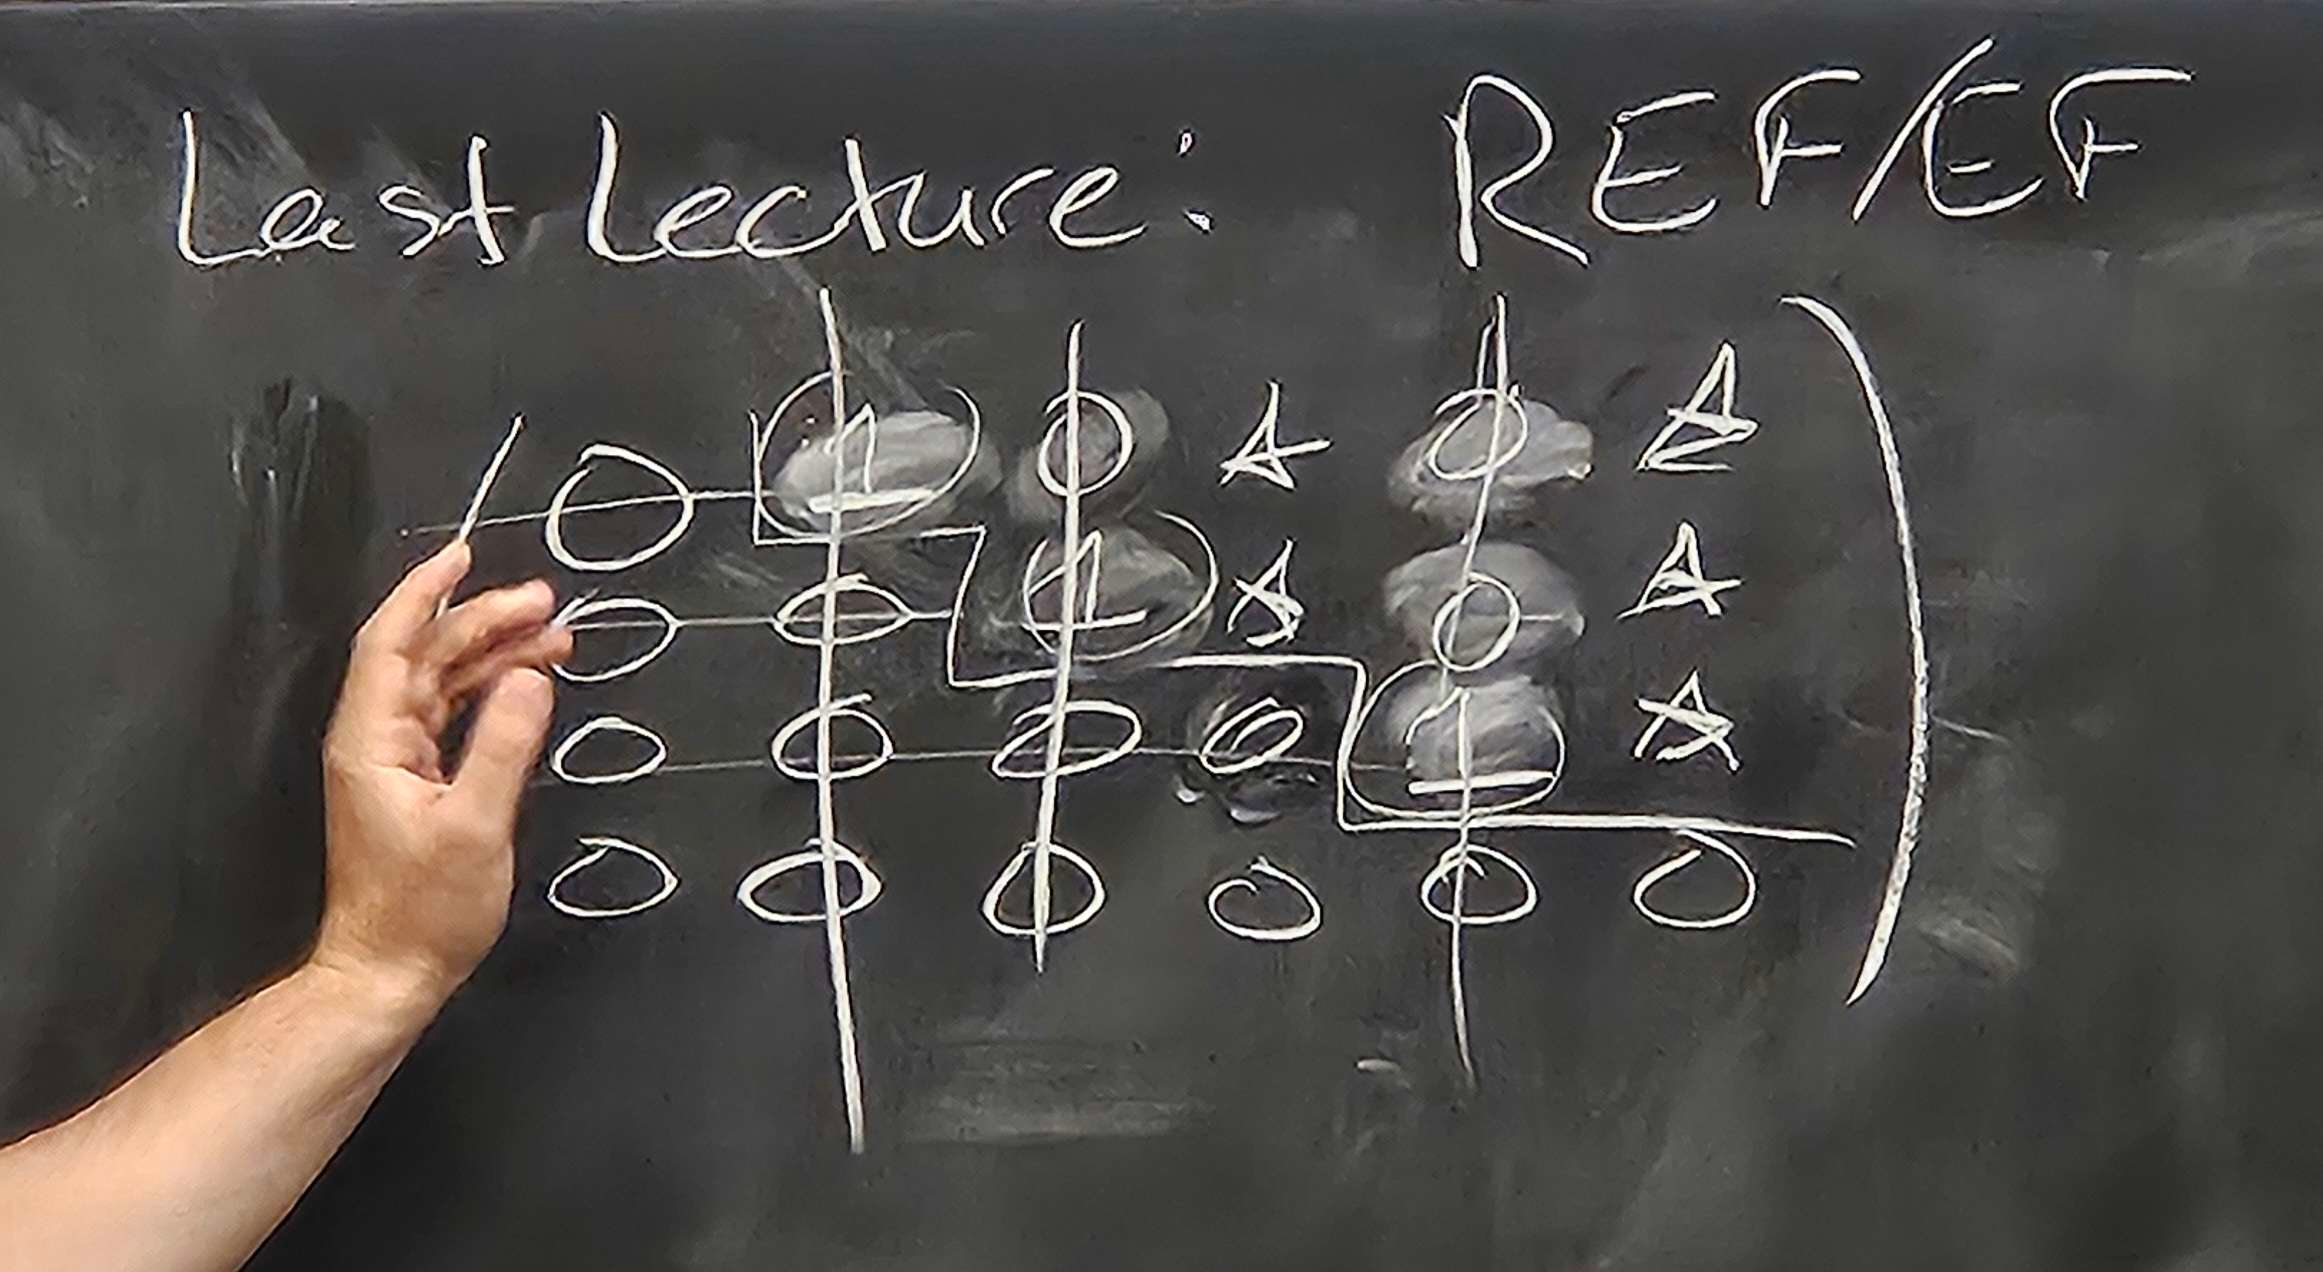 Last Lecture: REF/EF
0 1 0 ☆ 0 ☆
0 0 1 ☆ 0 ☆
0 0 0 0 1 ☆
0 0 0 0 0 0